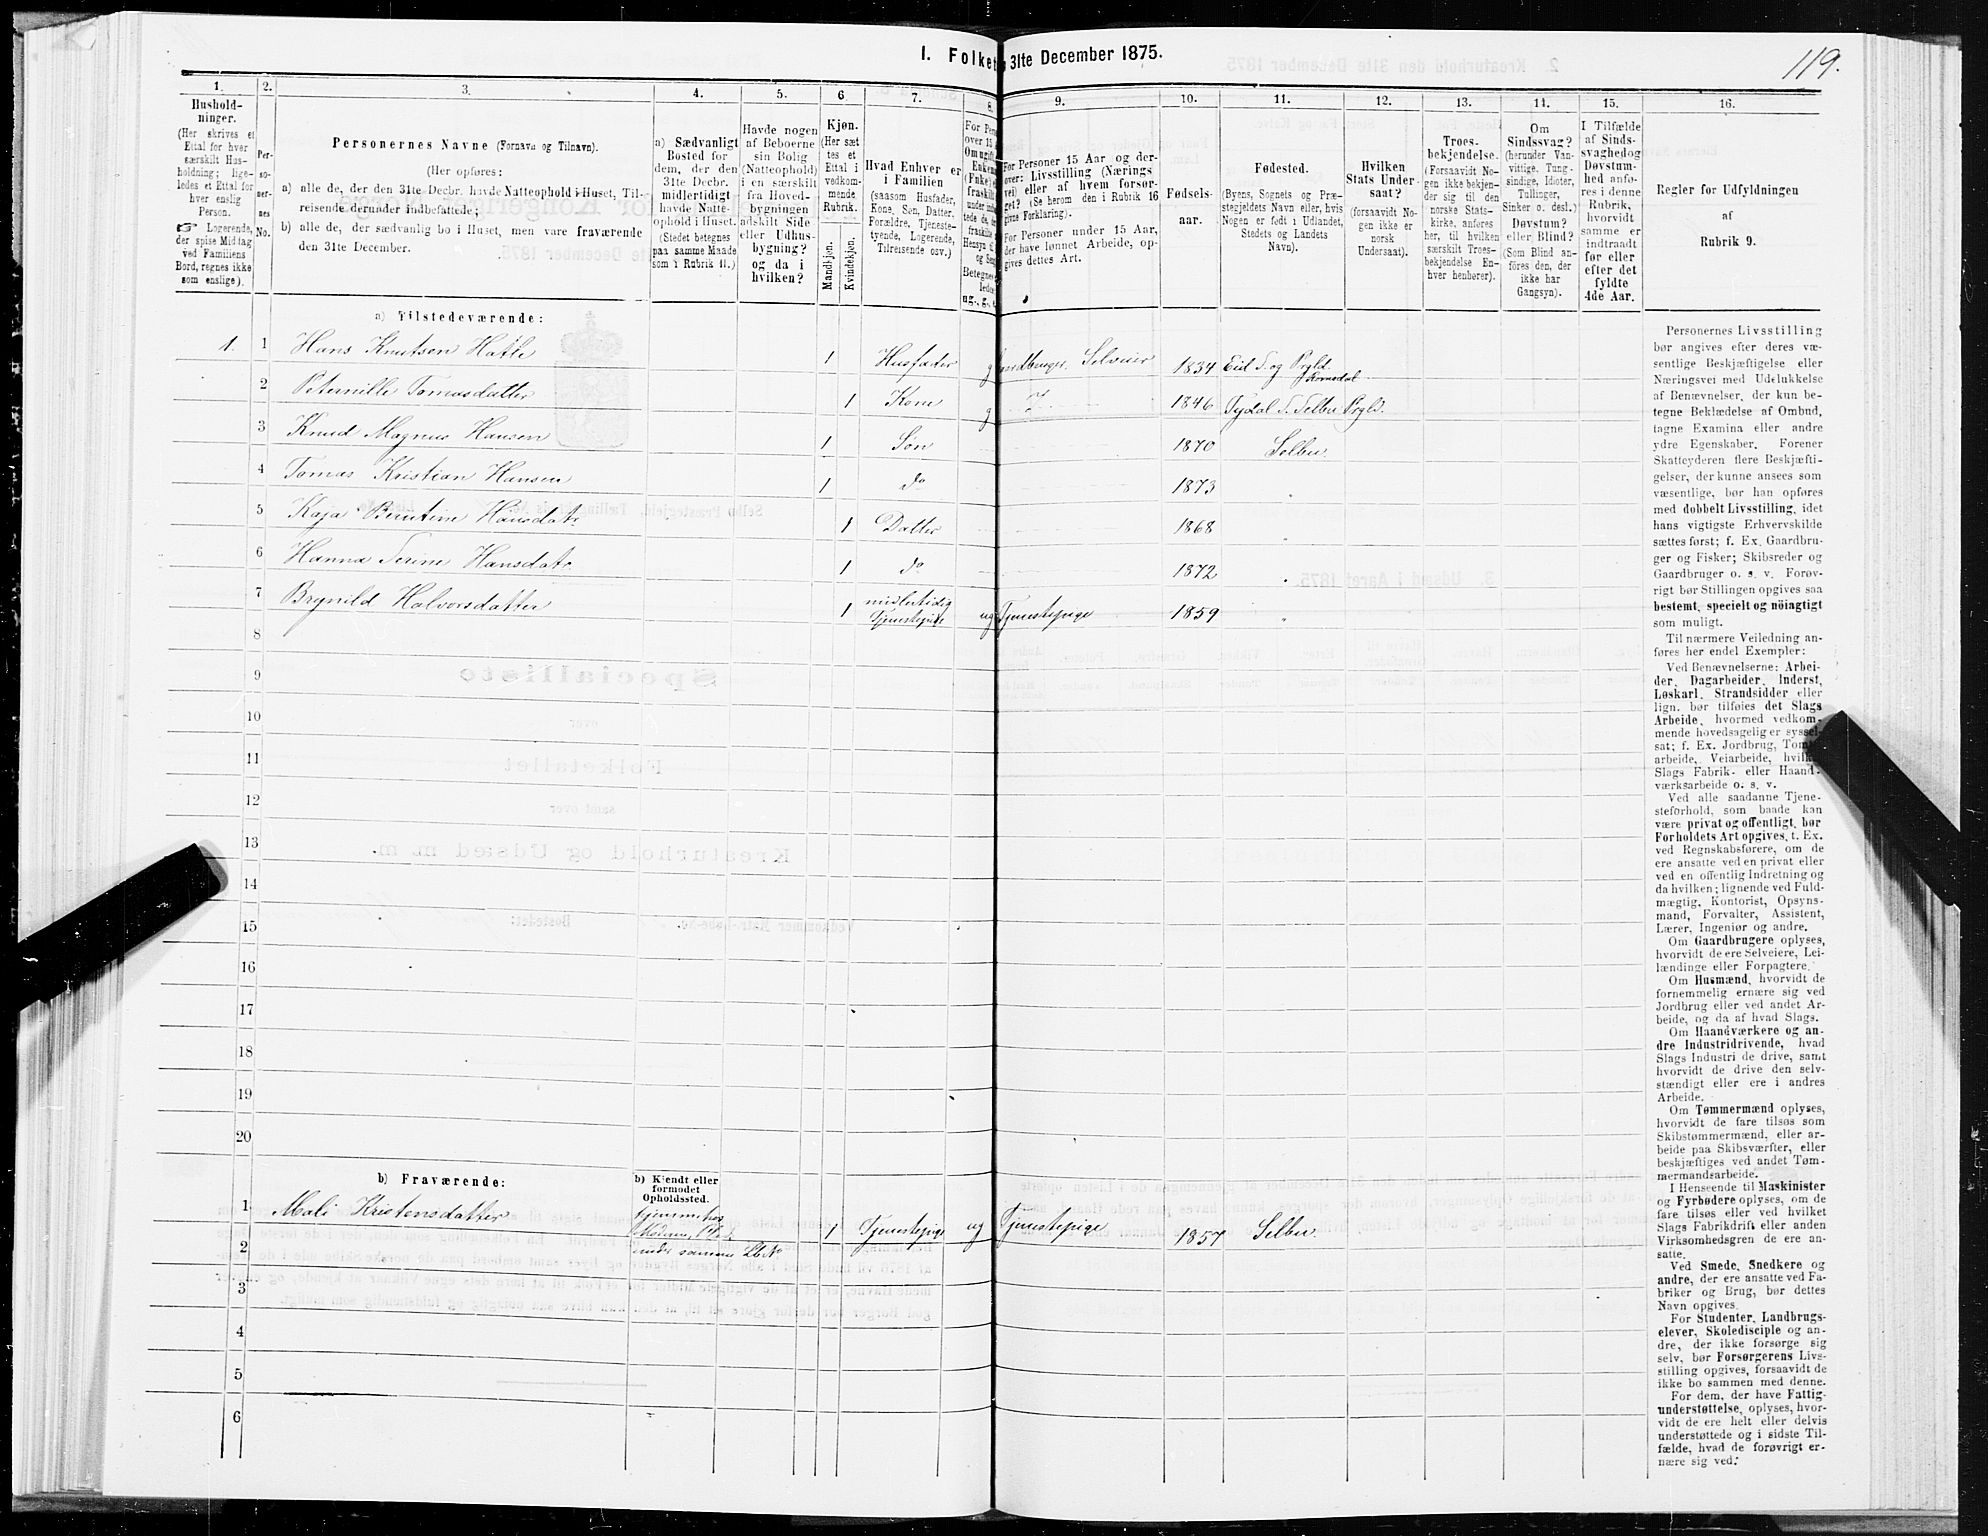 119.
I. Folket
31te December 1875.
1. 2. 3. 4. 5. 6. 7. 8. 9. 10. 11. 12. 13. 14. 15. 16.
Husholdninger.
(Her skrives et
Ettal for hver
særskilt Husholdning;
ligeledes et Ettal for
hver enslig
Person.
Logerende,
der spise Middag
ved Familiens
Bord, regnes ikke
som enslige).
Personernes
No.
Personernes Navne (Fornavn og Tilnavn).
(Her opføres:
a) alle de, der den 31te Decbr. havde Natteophold i Huset, Tilreisende
derunder indbefattede;
b) alle de, der sædvanlig bo i Huset, men vare fraværende
den 31te December.
a) Sædvanligt
Bosted for
dem, der den
31te Decbr.
midlertidigt
havde Natteophold
i Huset.
(Stedet betegnes
paa samme Maade
som i Rubrik 11.)
Havde nogen
af Beboerne
sin Bolig
(Natteophold)
i en særskilt
fra Hovedbygningen
adskilt Side
eller Udhusbygning?
og da i
hvilken?
Kjøn.
(Her sættes
et
Ettal i
vedkommende
Rubrik.
Mandkjøn.
Kvindekjøn.
Hvad Enhver er
i Familien
(saasom Husfader,
Kone, Søn, Datter,
Forældre, Tjenestetyende,
Logerende,
Tilreisende osv.)
For Personer 15 Aar og derover:
Livsstilling (Næringsvei)
eller af hvem forsørget?
(Se herom den i Rubrik 16
givne Forklaring).
For Personer under 15 Aar,
der have lønnet Arbeide, opgives
dettes Art.
Fødselsaar.
Fødested.
(Byens, Sognets og Præstegjeldets
Navn eller, hvis
Nogen er født i Udlandet,
Stedets og Landets
Navn).
Hvilken
Stats Undersaat?
(forsaavidt Nogen
ikke er
norsk
Undersaat).
Troesbekjendelse.
(Forsaavidt Nogen
ikke bekjender
sig til den
norske Statskirke,
anføres
her, til hvilken
særskilt Troesbekjendelse
Enhver
henhører).
Om
Sindssvag?
(herunder Vanvittige,
Tungsindige,
Idioter,
Tullinger,
Sinker o. desl.)
Døvstum?
eller Blind?
(Som Blind anføres
den, der
ikke har
Gangsyn).
I Tilfælde
af Sindssvaghed
og
Døvstumhed
anføres
i denne
Rubrik,
hvorvidt
samme er
indtraadt
før eller
efter det
fyldte
4de Aar.
Regler for Udfyldningen
af
Rubrik 9.
a) Tilstedeværende:
1. 1 Hans Knutsen Hatle 1 Husfader g Gaardbruger, Selveier 1834 Eid S. og Prgld. Romsdal
2 Peternille Tomasdatter 1 Kone g 1846 Tydal S. Selbu Prgld.
3 Knud Magnus Hansen 1 Søn 1870 Selbu
4 Tomas Kristian Hansen 1 do 1873 "
5 Kaja Berntine Hansdatr. 1 Datter 1868 "
6 Hanna Serine Hansdatr. 1 do 1872 "
7 Brynild Halvorsdatter 1 midlertidig Tjenestepige ug Tjenestepige 1859 "
8
9
10
11
12
13
14
15
16
17
18
19
20
b) Fraværende:
b) Kjendt eller
formodet
Opholdssted.
1 Mali Kristensdatter 1 Tjenestepige ug Tjenestepige 1857 Selbu.
2 under samme
3
4
5
6
Personernes Livsstilling
bør angives efter deres væsentlige
Beskjæftigelse eller
Næringsvei med Udelukkelse
af Benævnelser, der kun betegne
Beklædelse af Ombud,
tagne Examina eller andre
ydre Egenskaber. Forener
Skatteyderen flere Beskjæftigelser,
der kunne ansees som
væsentlige, bør han opføres
med dobbelt Livsstilling, idet
hans vigtigste Erhvervskilde
sættes først; f. Ex. Gaardbruger
og Fisker; Skibsreder og
Gaardbruger o. s. v. Forøvrigt
bør Stillingen opgives saa
bestemt, specielt og nöiagtigt
som muligt.
Til nærmere Veiledning anføres
her endel Exempler:
Ved Benævnelserne: Arbeider,
Dagarbeider, Inderst,
Løskarl, Strandsidder eller
lign. bør tilføies det Slags
Arbeide, hvormed vedkommende
hovedsagelig er sysselsat;
f. Ex. Jordbrug, Tomtearbeide,
Veiarbeide, hvilket
Slags Fabrik- eller Haandværksarbeide
o. s. v.
Ved alle saadanne Tjenesteforhold,
som baade kan
være privat og offentligt, bør
Forholdets Art opgives, t. Ex.
ved Regnskabsførere, om de
ere ansatte ved en privat eller
ved en offentlig Indretning og
da hvilken; lignende ved Fuldmægtig,
Kontorist, Opsynsmand,
Forvalter, Assistent,
Lærer, Ingeniør og andre.
Om Gaardbrugere oplyses,
hvorvidt de ere Selveiere, Leilændinge
eller Forpagtere.
Om Husmænd, hvorvidt de
fornemmelig ernære sig ved
Jordbrug eller ved andet Arbeide,
og da af hvad Slags.
Om Haandværkere og andre
Industridrivende, hvad
Slags Industri de drive, samt
hvorvidt de drive den selvstændigt
eller ere i andres
Arbeide.
Om Tømmermænd oplyses,
hvorvidt de fare tilsøs som
Skibstømmermænd, eller arbeide
paa Skibsværfter, eller
beskjæftiges ved andet Tømmermandsarbeide.
I Henseende til Maskinister
og Fyrbødere oplyses, om de
fare tilsøs eller ved hvilket
Slags Fabrikdrift eller anden
Virksomhedsgren de ere ansatte.
Ved Smede, Snedkere og
andre, der ere ansatte ved Fabriker
og Brug, bør dettes
Navn opgives.
For Studenter, Landbrugselever,
Skoledisciple og andre,
der ikke forsørge sig
selv, bør Forsørgerens Livsstilling
opgives, forsaavidt de
ikke bo sammen med denne.
For dem, der have Fattigunderstøttelse,
oplyses, hvorvidt
de ere helt eller delvis
understøttede og i sidste Tilfælde,
hvad de forøvrigt ernære
sig ved.